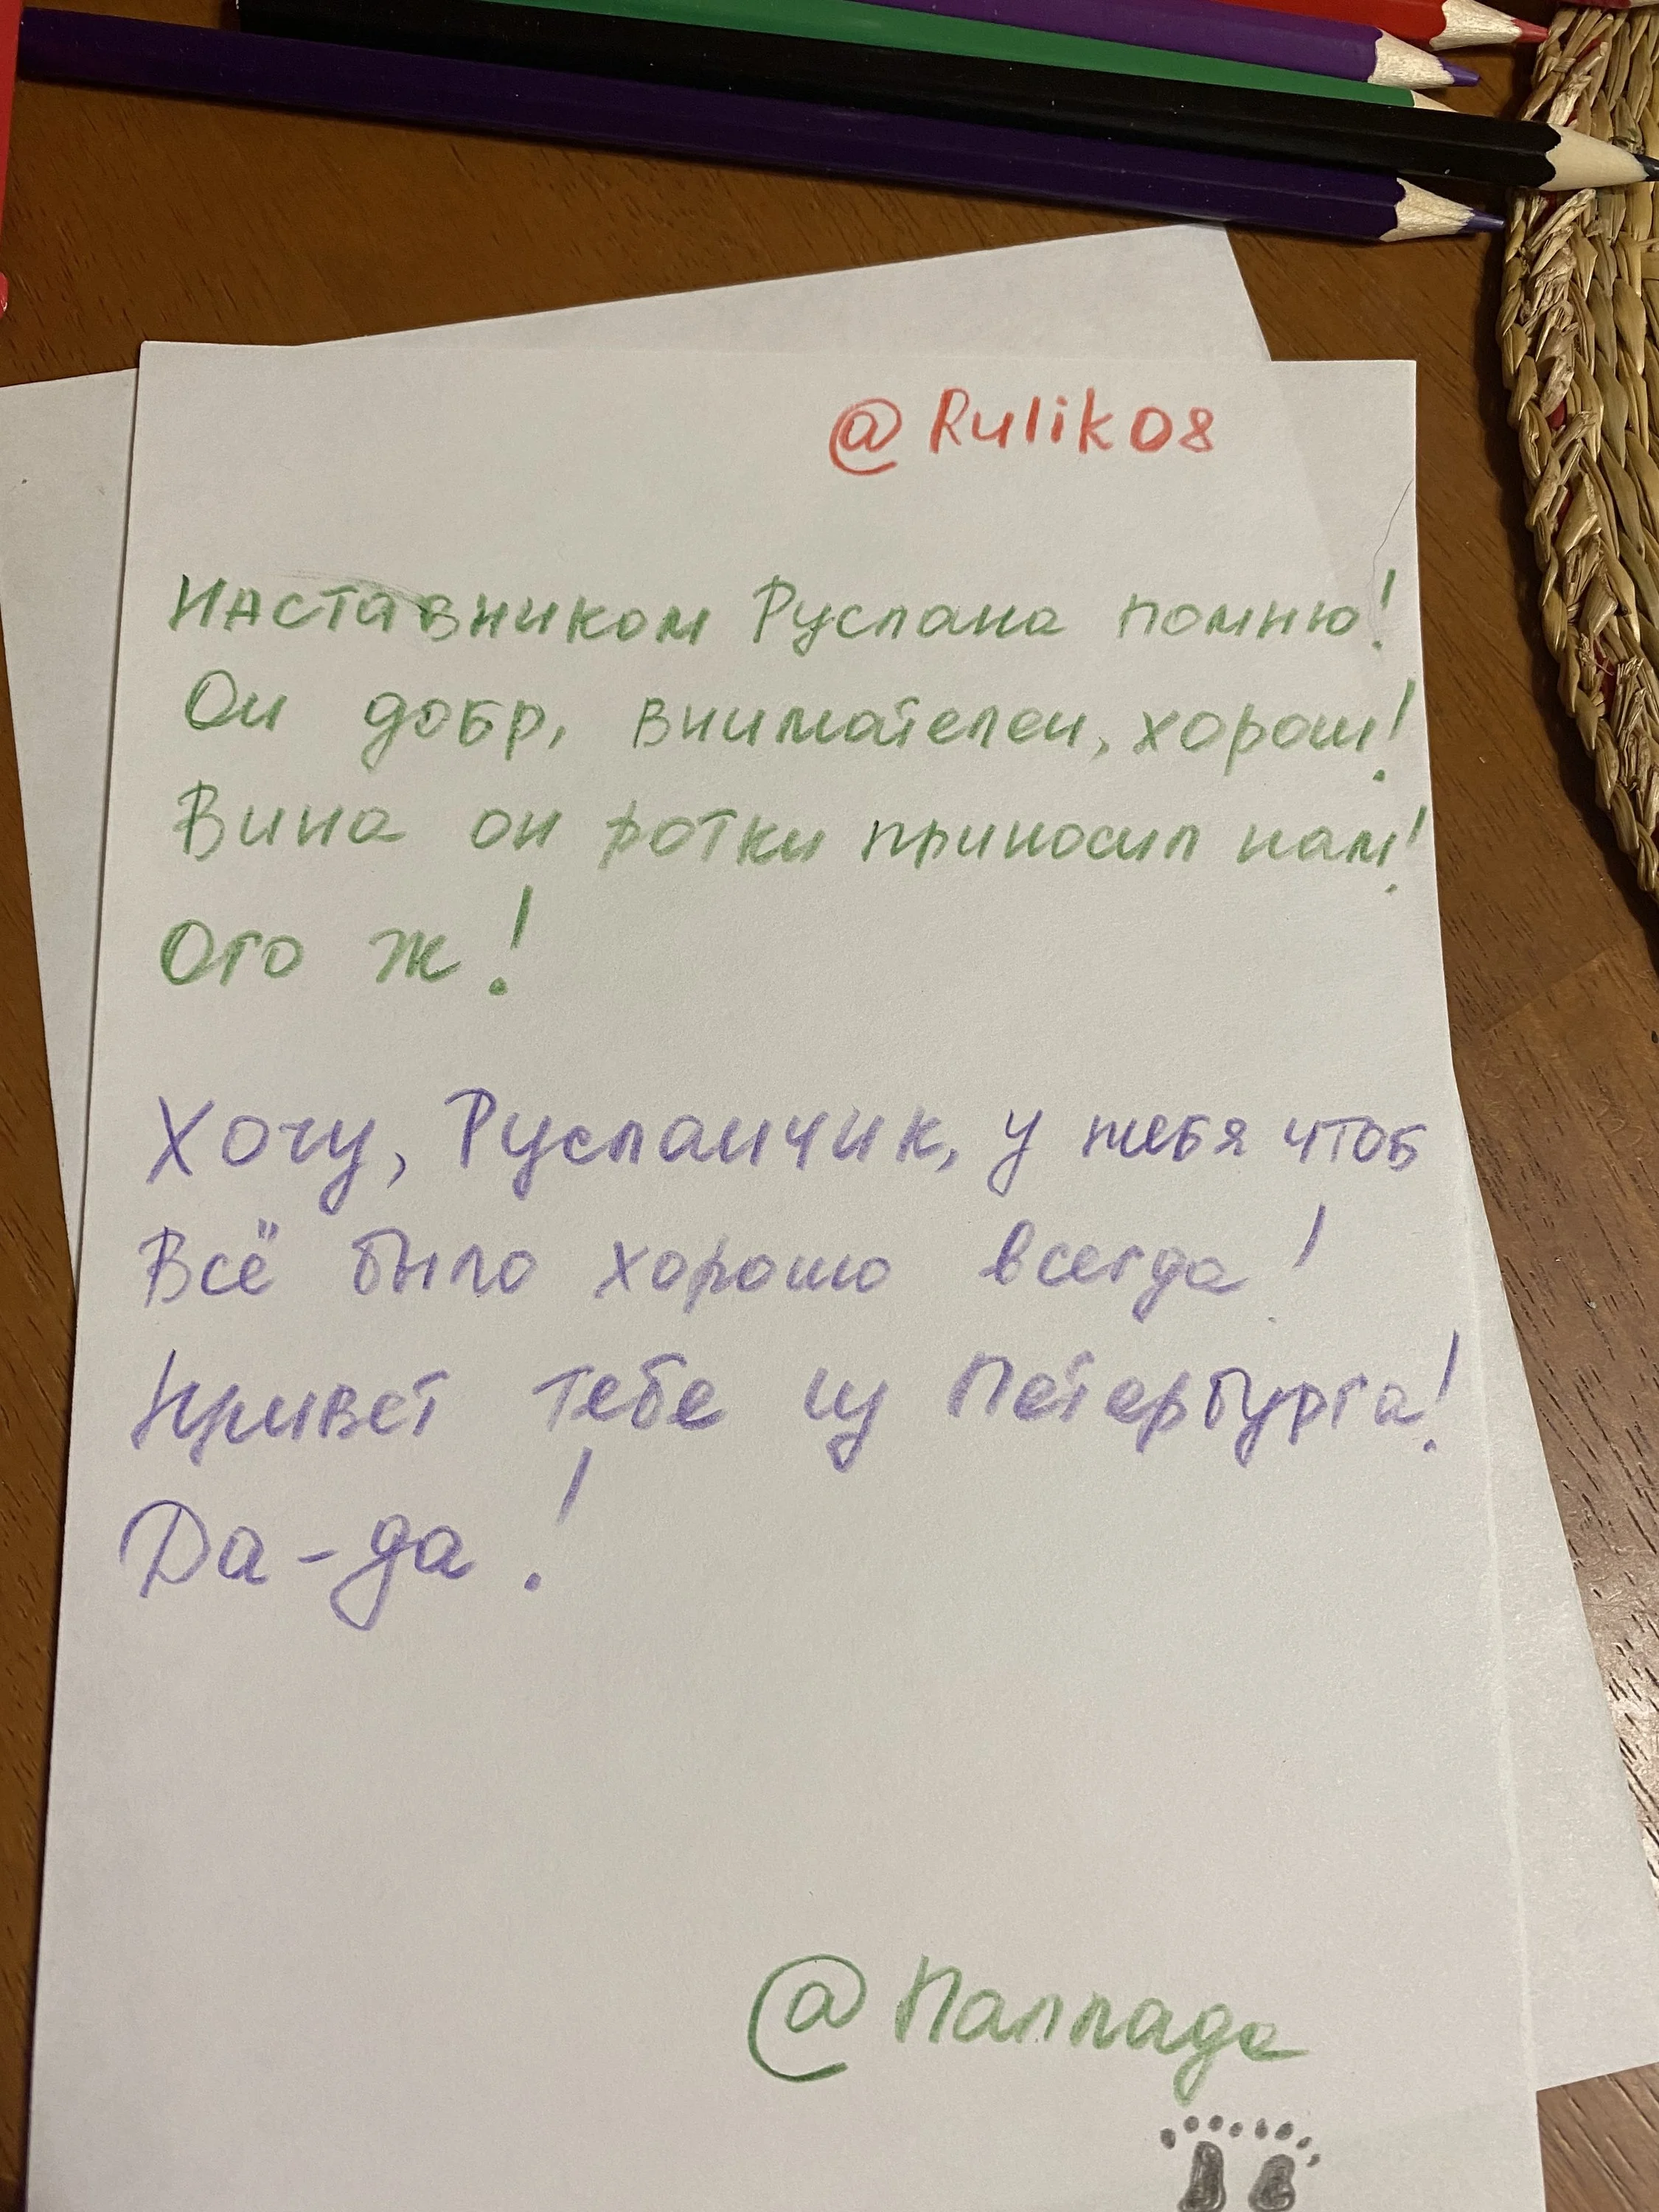 @Rulik08
Наставником Руслана помню!
Он добр, внимателен, хорош!
Вина он ротки приносил нам!
Ого ж!
Хочу, Русланчик, у тебя чтоб
Всё было хорошо всегда!
Привет тебе из Петербурга!
Да-да!
@Паллада